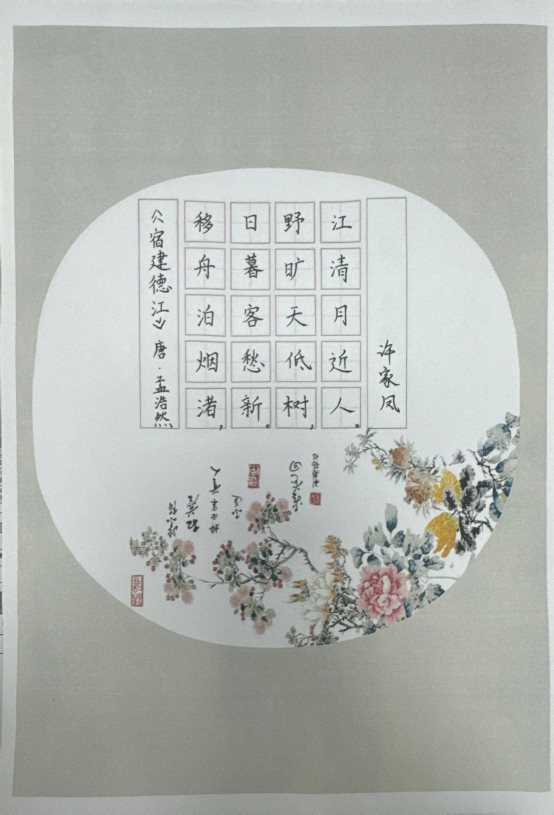 《宿建德江》唐·孟浩然
移舟泊烟渚，
日暮客愁新。
野旷天低树，
江清月近人。
许家凤